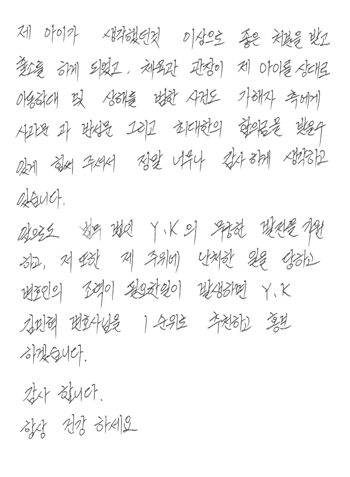 제 아이가 생각했던것 이상으로 좋은 처분을 받고
출소를 하게 되었고, 체육관 관장이 제 아이를 상대로
아동학대 및 상해를 범한 사건도 가해자 측에게
사과문 과 반성문 그리고 최대한의 합의금을 받을수
있게 힘써 주셔서 정말 너무나 감사하게 생각하고
있습니다.
앞으로도 법무 법인 Y.K 의 무궁한 발전을 기원
하고, 저 또한 제 주위에 난처한 일을 당하고
변호인의 조력이 필요한일이 발생하면 Y.K
김민혁 변호사님을 1순위로 추천하고 홍보
하겠습니다.
감사 합니다.
항상 건강 하세요